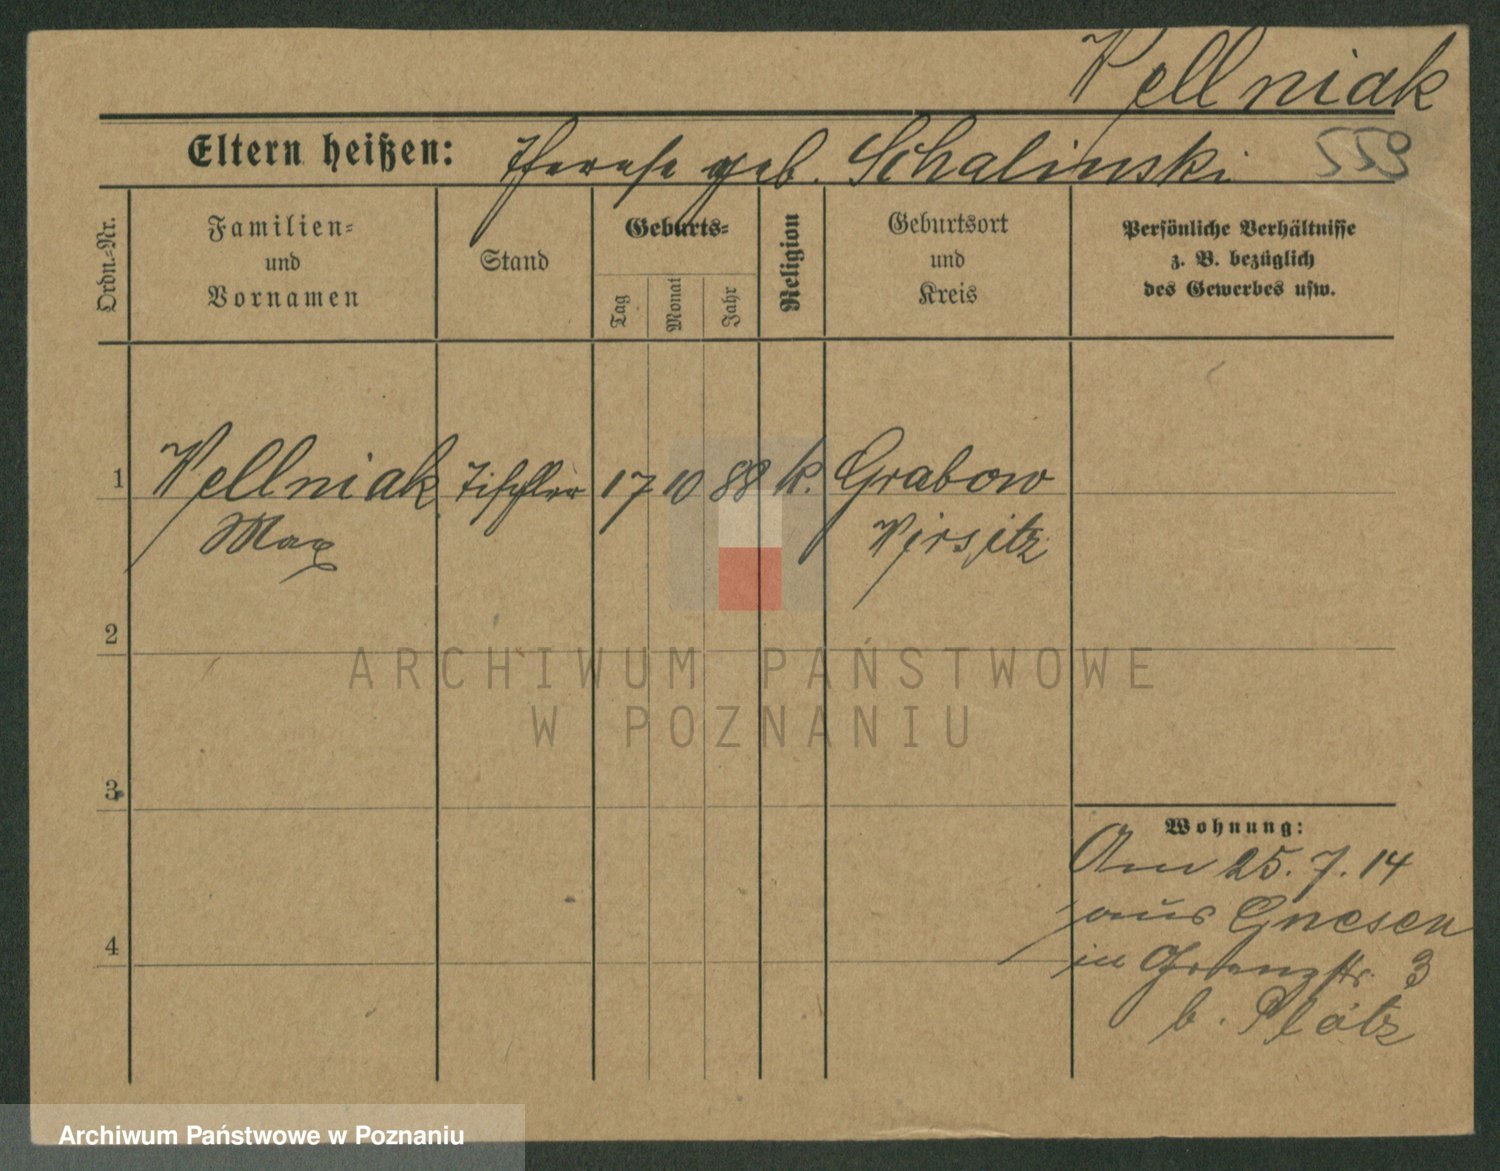 Wellniak
559
Eltern heißen: Therese geb. Schalinski
Ordn.-Nr.
Familien-
und
Vornamen
Stand
Geburts-
Tag
Monat
Jahr
Religion
Geburtsort
und
Kreis
Persönliche Verhältnisse
z. B. bezüglich
des Gewerbes usw.
1 Wellniak Tischler 17 10 88 k. Grabow
Max Wirsitz
2
ARCHIWUM PAŃSTWOWE
W POZNANIU
3
Wohnung:
Am 25. 7. 14
aus Gnesen
in Grenzstr. 3
b. Plötz
4
Archiwum Państwowe w Poznaniu